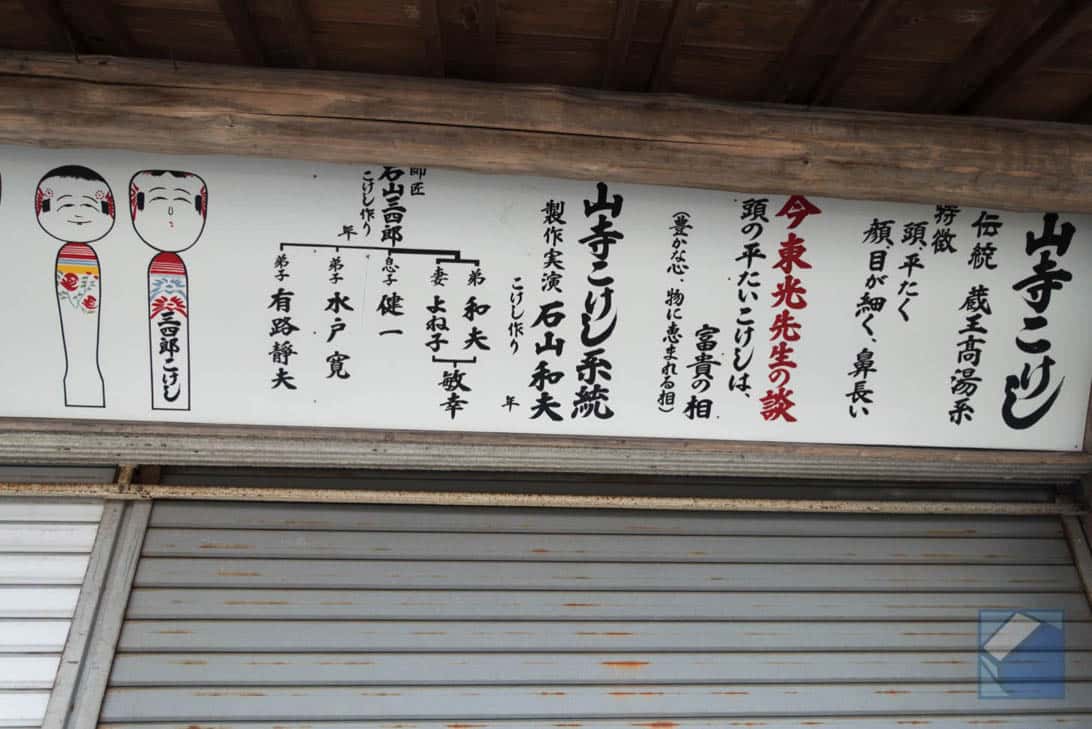 山寺こけし
伝統 蔵王高湯系
特徴
頭、平たく
顔、目が細く、鼻長い
今東光先生の談
頭の平たいこけしは、
富貴の相
(豊かな心、物に恵まれる相)
山寺こけし系統
製作実演 石山和夫
こけし作り 年
師匠
石山三四郎
こけし作り 年
弟 和夫
妻 よね子
敏幸
息子 健一
弟子 水戸寛
弟子 有路靜夫
三四郎こけし